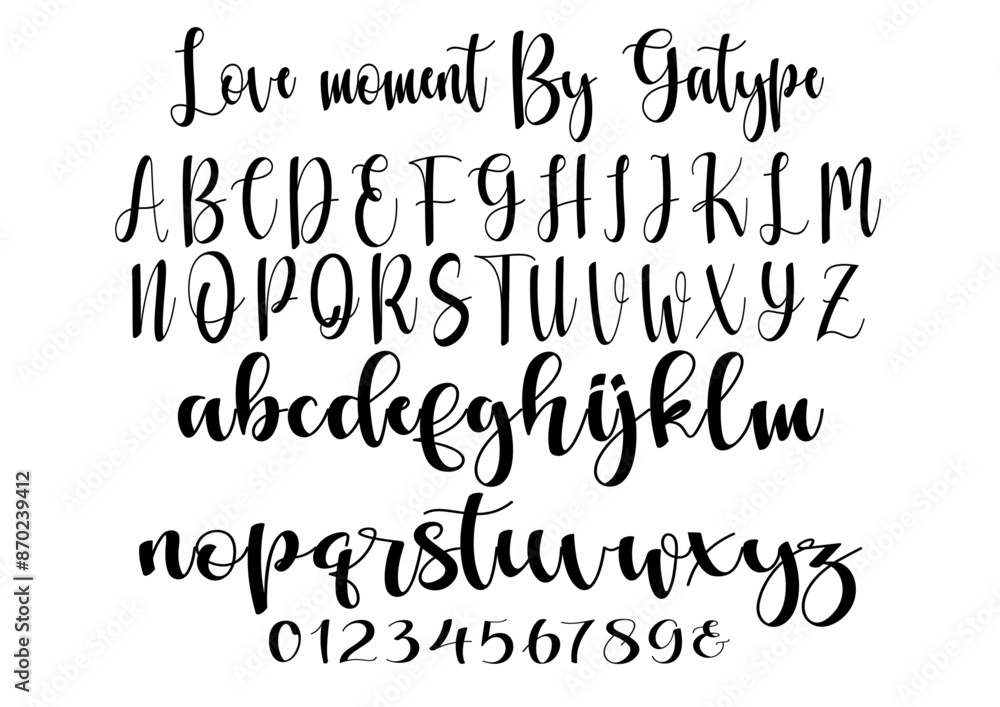 Love moment By Gatype
ABCDEFGHIJKLM
NOPQRSTUVWXYZ
abcdefghijklm
nopqrstuvwxyz
0123456789&
Adobe Stock | #870239412